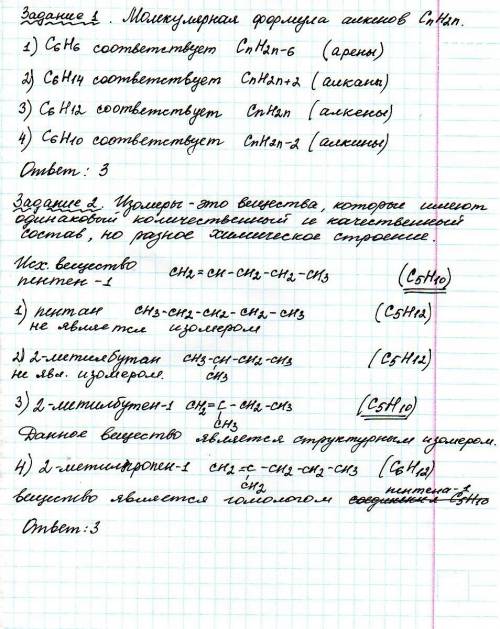 Задание 1. Молекулярная формула алкенов CnH2n.
1) C6H6 соответствует CnH2n-6 (арены)
2) C6H14 соответствует CnH2n+2 (алканы)
3) C6H12 соответствует CnH2n (алкены)
4) C6H10 соответствует CnH2n-2 (алкины)
Ответ: 3
Задание 2. Изомеры - это вещества, которые имеют
одинаковый количественный и качественный
состав, но разное химическое строение.
Исх. вещество
пентен-1 CH2=CH-CH2-CH2-CH3 (C5H10)
1) пентан CH3-CH2-CH2-CH2-CH3 (C5H12)
не является изомером
2) 2-метилбутан CH3-CH-CH2-CH3 (C5H12)
не явл. изомером. CH3
3) 2-метилбутен-1 CH2=C-CH2-CH3 (C5H10)
CH3
Данное вещество является структурным изомером.
4) 2-метил пропен-1 CH2=C-CH2-CH2-CH3 (C6H12)
CH2 пентена-1
вещество является гомологом соединения C5H10
Ответ: 3